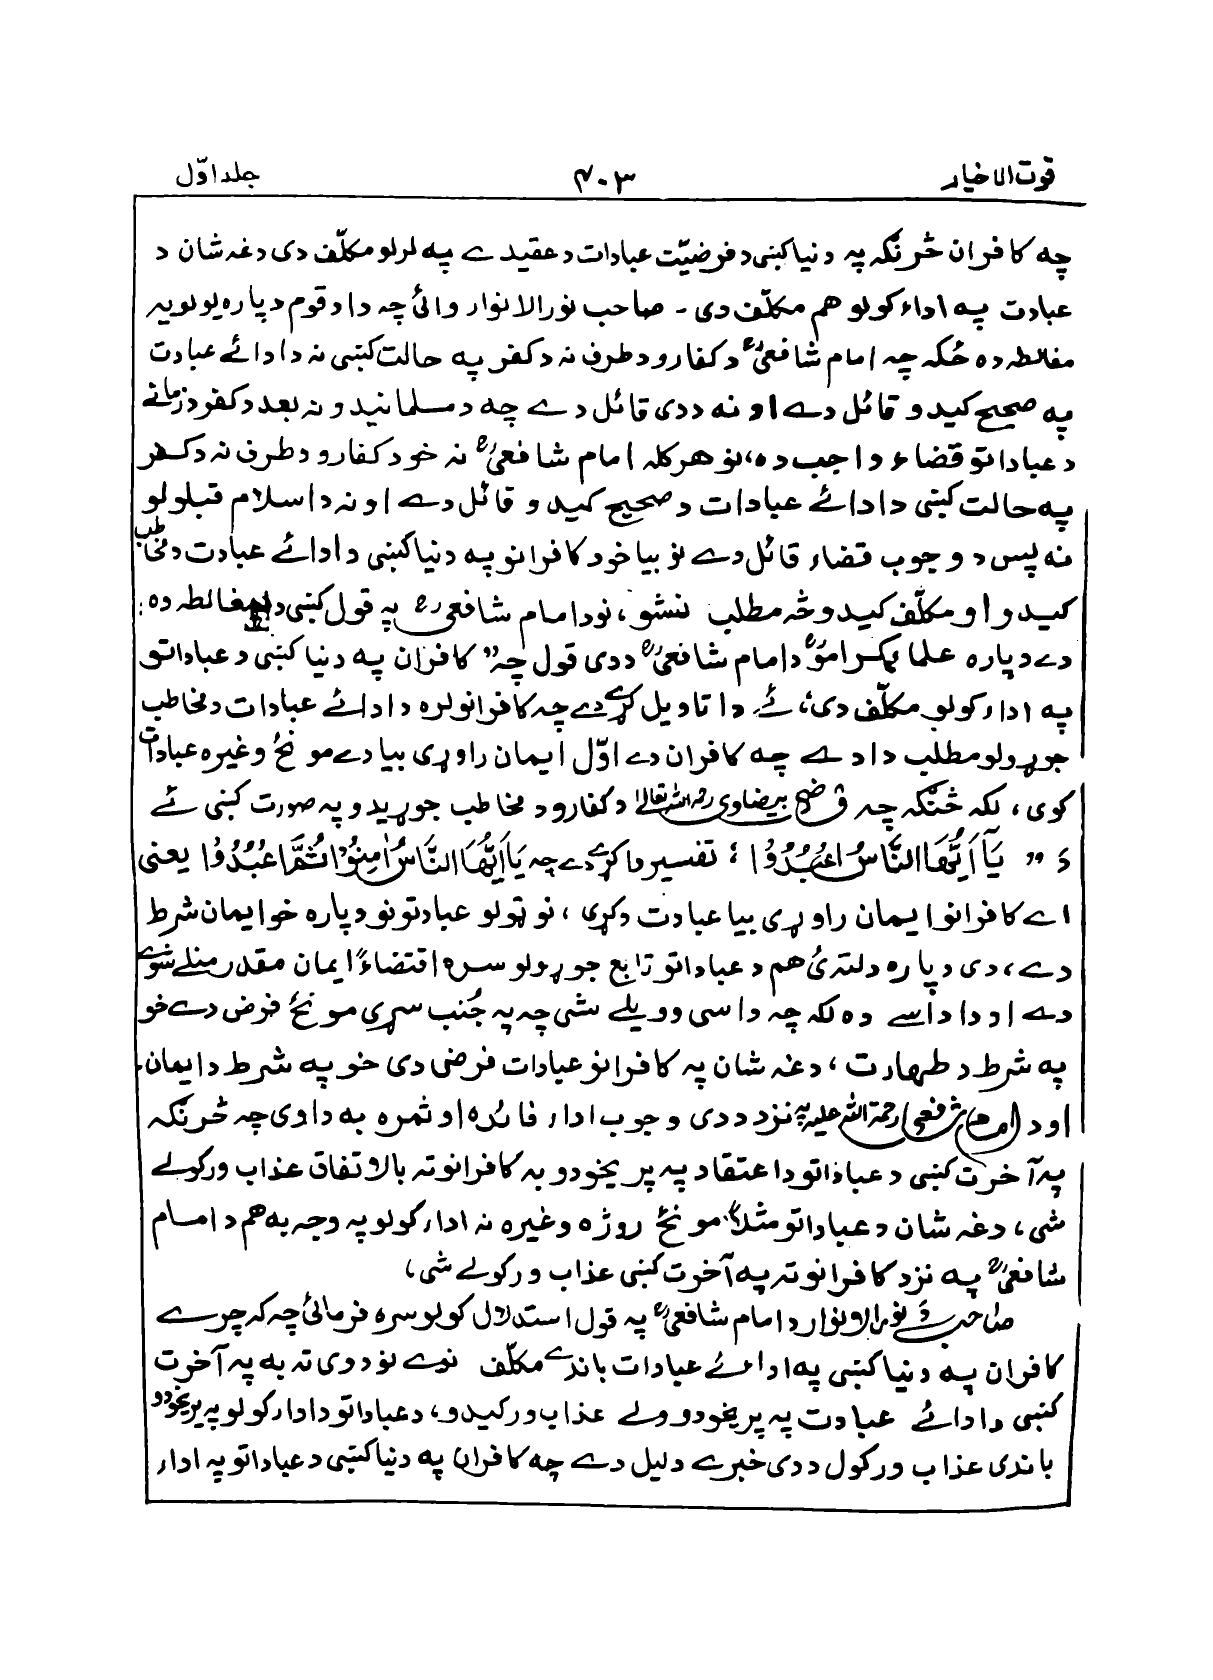 قوت الاخیار ۴۰۳ جلد اوّل
چه کافران څرنګه په دنیا کښی د فرضیّت عبادات د عقیدے په لرلو مکلّف دی دغه شان د
عبادت په اداء کولو هم مکلّف دی - صاحب نورالانوار وائی چه دا د قوم دپاره یو لویه
مغالطه ده ځکه چه امام شافعیؒ د کفارو د طرف نه د کفر په حالت کښی نه د ادائے عبادت
په صحیح کیدو قائل دے او نه ددی قائل دے چه د مسلمانیدو نه بعد د کفر د زمانے
د عباداتو قضاء واجب ده، نو هرکله امام شافعیؒ نه خود کفارو د طرف نه د کفر
په حالت کښی د ادائے عبادات د صحیح کیدو قائل دے او نه د اسلام قبلولو
نه پس د وجوب قضاء قائل دے نو بیا خود کافرانو په دنیا کښی د ادائے عبادت د مخاطب
کیدو او مکلّف کیدو څه مطلب نشو، نو د امام شافعیؒ په قول کښی دا مغالطه ده:
دے دپاره علما یکرامو د امام شافعیؒ ددی قول چه " کافران په دنیا کښی د عباداتو
په اداء کولو مکلّف دی، ئے دا تاویل کړے دے چه کافرانو لره د ادائے عبادات د مخاطب
جوړولو مطلب دا دے چه کافران دے اوّل ایمان راوړی بیا دے مونځ وغیره عبادات
کوی، لکه څنګه چه قاضی بیضاوی رحمه الله تعالیٰ د کفارو د مخاطب جوړیدو په صورت کښی ئے
دَ " یَآ اَیُّهَا النَّاسُ اعْبُدُوْا ؛ تفسیر دا کړے دے چه یَا اَیُّهَا النَّاسُ اٰمِنُوْا ثُمَّ اعْبُدُوْا یعنی
اے کافرانو ایمان راوړی بیا عبادت وکړی، نو ټولو عبادتونو دپاره خو ایمان شرط
دے، دی دپاره دلته ئ هم د عباداتو تابع جوړولو سره اقتضاءً ایمان مقدر منلے شوے
دے او دا داسے ده لکه چه داسی وویلے شی چه په جُنب سړی مونځ فرض دے خو
په شرط د طهارت، دغه شان په کافرانو عبادات فرض دی خو په شرط د ایمان،
او د امام شافعی رحمة الله علیه په نزد ددی وجوب اداء فائده او ثمره به دا وی چه څرنګه
په آخرت کښی د عباداتو د اعتقاد په پریخودو به کافرانو ته بالاتفاق عذاب ورکولے
شی، دغه شان د عباداتو مثلاً مونځ روژه وغیره نه اداء کولو په وجه به هم د امام
شافعیؒ په نزد کافرانو ته په آخرت کښی عذاب ورکولے شی،
صاحب دَ نورالانوار د امام شافعیؒ په قول استدلال کولو سره فرمائی چه که چرے
کافران په دنیا کښی په ادائے عبادات باندے مکلّف نوے نو دوی ته به په آخرت
کښی د ادائے عبادت په پریخودو ولے عذاب ورکیدو، د عباداتو د اداء کولو په پریخودو
باندی عذاب ورکول ددی خبرے دلیل دے چه کافران په دنیا کښی د عباداتو په اداء